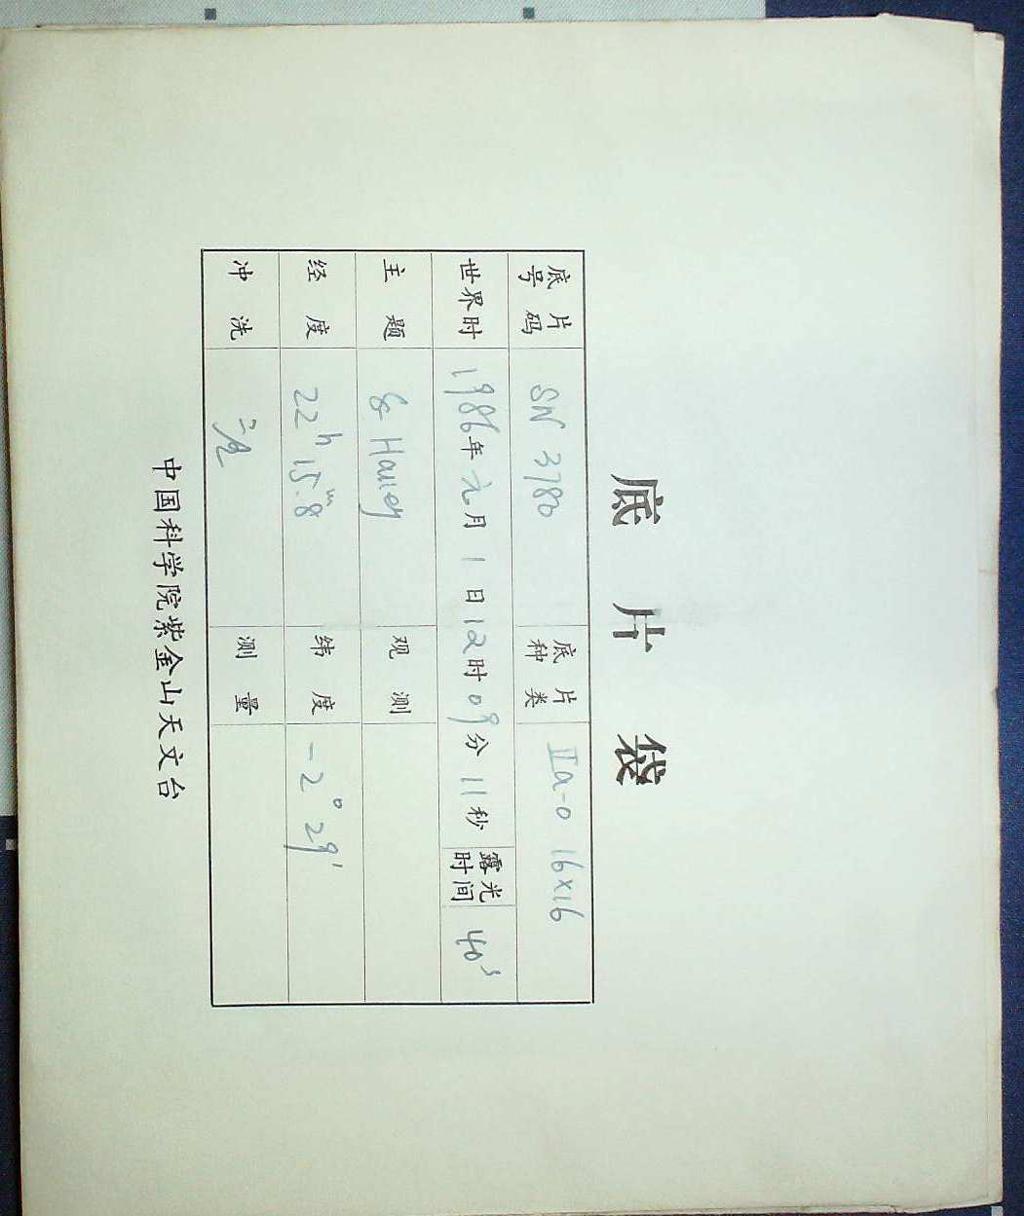 底片袋
底片号码 SN 3780 底片种类 IIa-O 16×16
世界时 1986年元月1日12时09分11秒 露光时间 40s
主题 & Halley 观测
经度 22h15m.8 纬度 -2°29′
冲洗 测量
中国科学院紫金山天文台